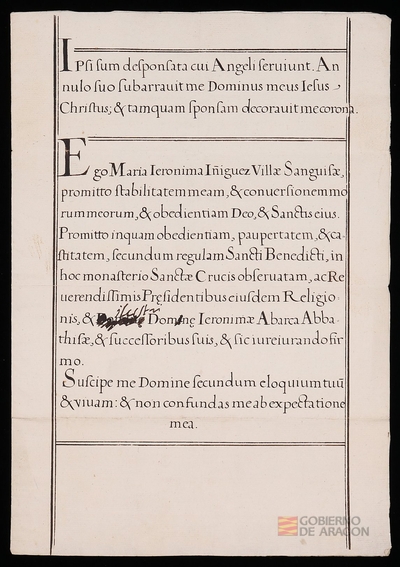 Ipsi sum desponsata cui Angeli seruiunt. An
nulo suo subarrauit me Dominus meus Iesus
Christus; & tamquam sponsam decorauit me corona.
Ego Maria Ieronima Iñiguez Villæ Sanguisæ,
promitto stabilitatem meam, & conuersionem mo
rum meorum, & obedientiam Deo, & Sanctis eius.
Promitto inquam obedientiam, paupertatem, & ca-
stitatem, secundum regulam Sancti Benedicti, in
hoc monasterio Sanctæ Crucis obseruatam, ac Re
uerendissimis Presidentibus eiusdem Religio-
nis, & Domine Ieronimæ Abarca Abba-
thisæ, & successoribus suis, & sic iureiurando fir
mo.
Suscipe me Domine secundum eloquium tuũ
& viuam: & non confundas me ab expectatione
mea.
GOBIERNO
DE ARAGON